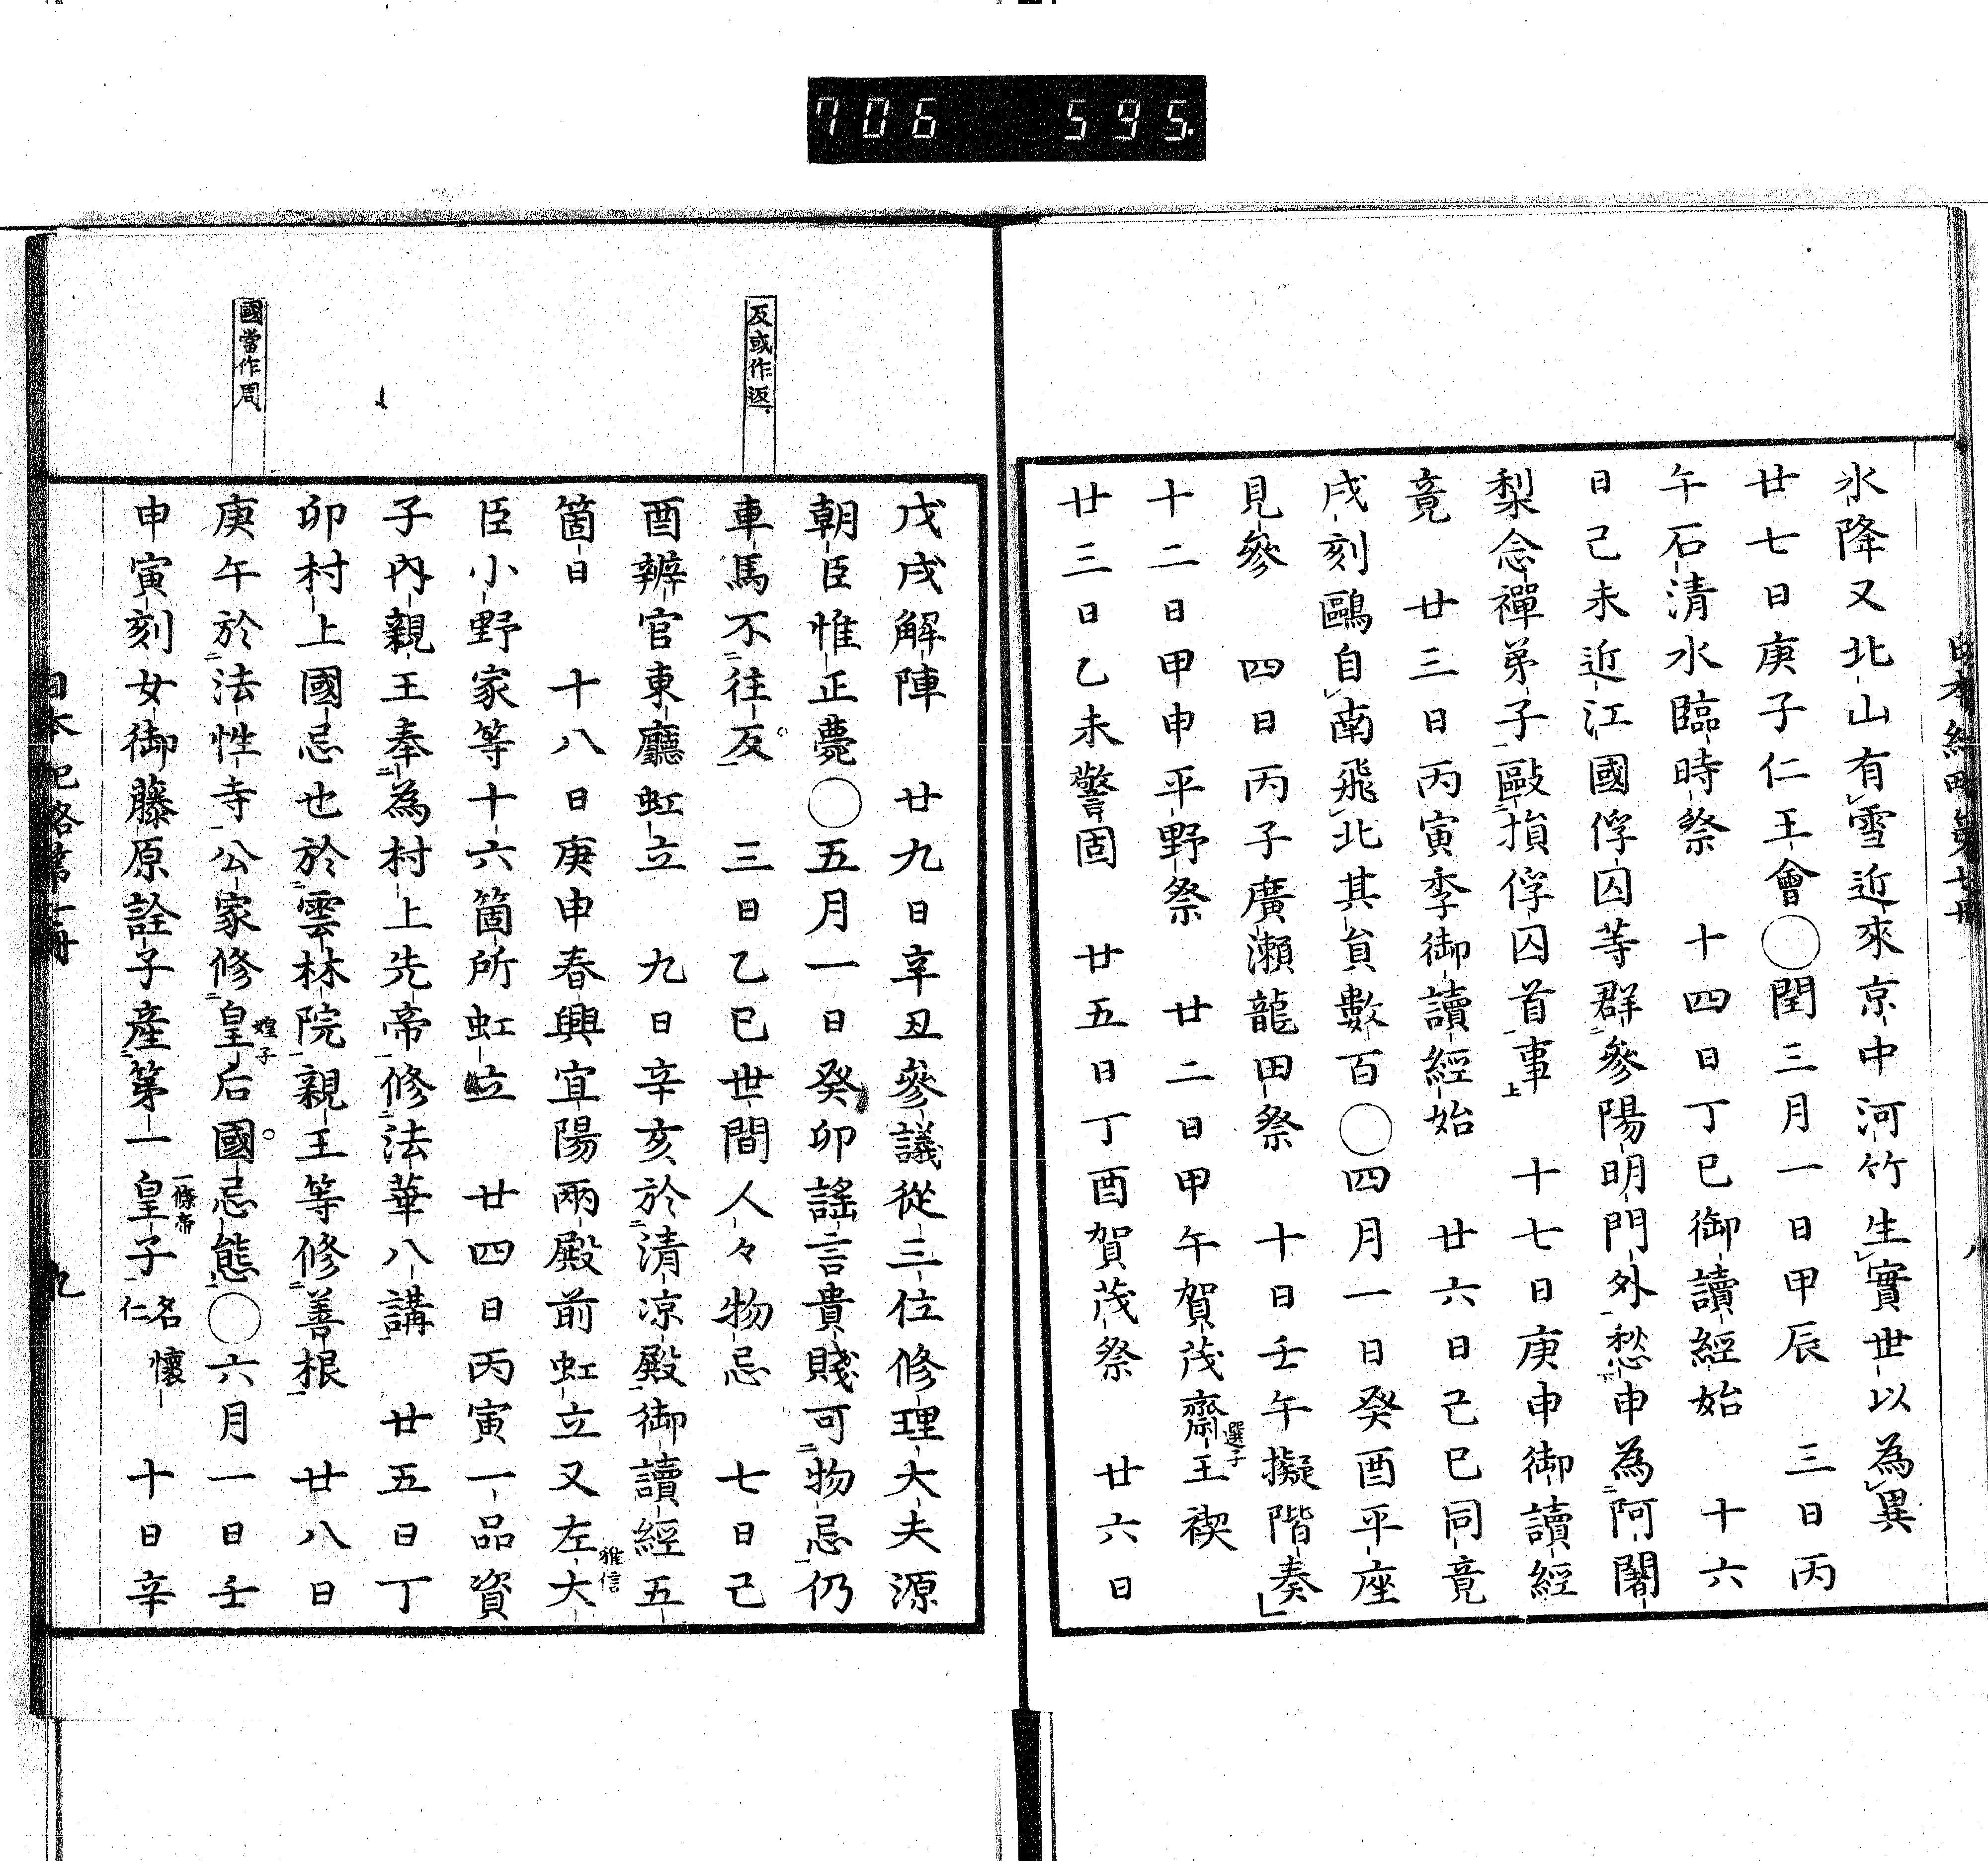 706 595
氷降又北山有雪近來京中河竹生實世以為異
廿七日庚子仁王會〇閏三月一日甲辰 三日丙
午石清水臨時祭 十四日丁巳御讀經始 十六
日己未近江國俘囚等群參陽明門外愁申為阿闍
梨念禪弟子毆損俘囚首事上 十七日庚申御讀經
竟 廿三日丙寅季御讀經始 廿六日己巳同竟
戌刻鷗自南飛北其員數百〇四月一日癸酉平座
見參 四日丙子廣瀨龍田祭 十日壬午擬階奏
十二日甲申平野祭 廿二日甲午賀茂齋王選子禊
廿三日乙未警固 廿五日丁酉賀茂祭 廿六日
戊戌解陣 廿九日辛丑參議從三位修理大夫源
朝臣惟正薨〇五月一日癸卯謠言貴賤可物忌仍
車馬不往反 三日乙巳世間人々物忌 七日己
酉辨官東廳虹立 九日辛亥於清凉殿御讀經五
箇日 十八日庚申春興宜陽兩殿前虹立又左大雅信
臣小野家等十六箇所虹立 廿四日丙寅一品資
子內親王奉為村上先帝修法華八講 廿五日丁
卯村上國忌也於雲林院親王等修善根 廿八日
庚午於法性寺公家修皇后媓子國忌態〇六月一日壬
申寅刻女御藤原詮子產第一皇子一條帝名懷仁 十日辛
反或作返
國當作周
日本紀略第
九